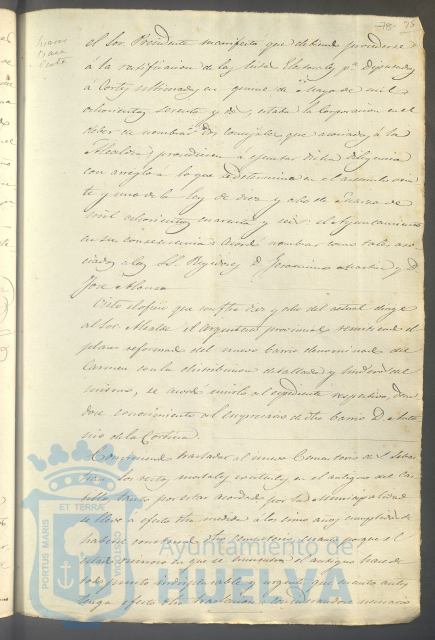 78- 75
el Sor. Presidente manifestó que debiendo procederse
á la ratificacion de las listas Electorales pª. Diputados
á Cortes ultimadas en quince de Mayo de mil
ochocientos sesenta y dos, estaba la Corporacion en el
deber de nombrar dos Concejales que asociados á la
Alcaldia procediesen á ejecutar dicha diligencia
con arreglo á lo que se determina en el articulo vein
te y uno de la Ley de diez y ocho de Marzo de
mil ochocientos cuarenta y seis: el Ayuntamiento
en su consecuencia acordó nombrar como tales aso
ciados á los SS. Regidores D. Geronimo Martin y D.
José Alonso
Visto el oficio que con fha diez y ocho del actual dirige
al Sor. Alcalde el Arquitecto provincial remitiendo el
plano reformado del nuevo barrio denominado del
Carmen con la distribucion detallada y del
mismo, se acordó unirlo al espediente respectivo, dan
dose conocimiento al empresario de dho barrio D. Anto
nio de la Cortina.
Conviniendo trasladar al nuevo Cementerio de S. Sebas
tian los restos mortales existentes en el antiguo del Cas
tillo, tanto por estar acordado por la Municipalidad
se lleve á efecto dha medida á los cinco años cumplidos de
haberse construido dho Cementerio, cuanto porque el
estado ruinoso en que se encuentra el antiguo hace de
todo punto indispensable y urgente que cuanto antes
tenga efecto dha traslacion;
PORTUS MARIS
ET TERRAE
CUSTODIA
Ayuntamiento de
HUELVA